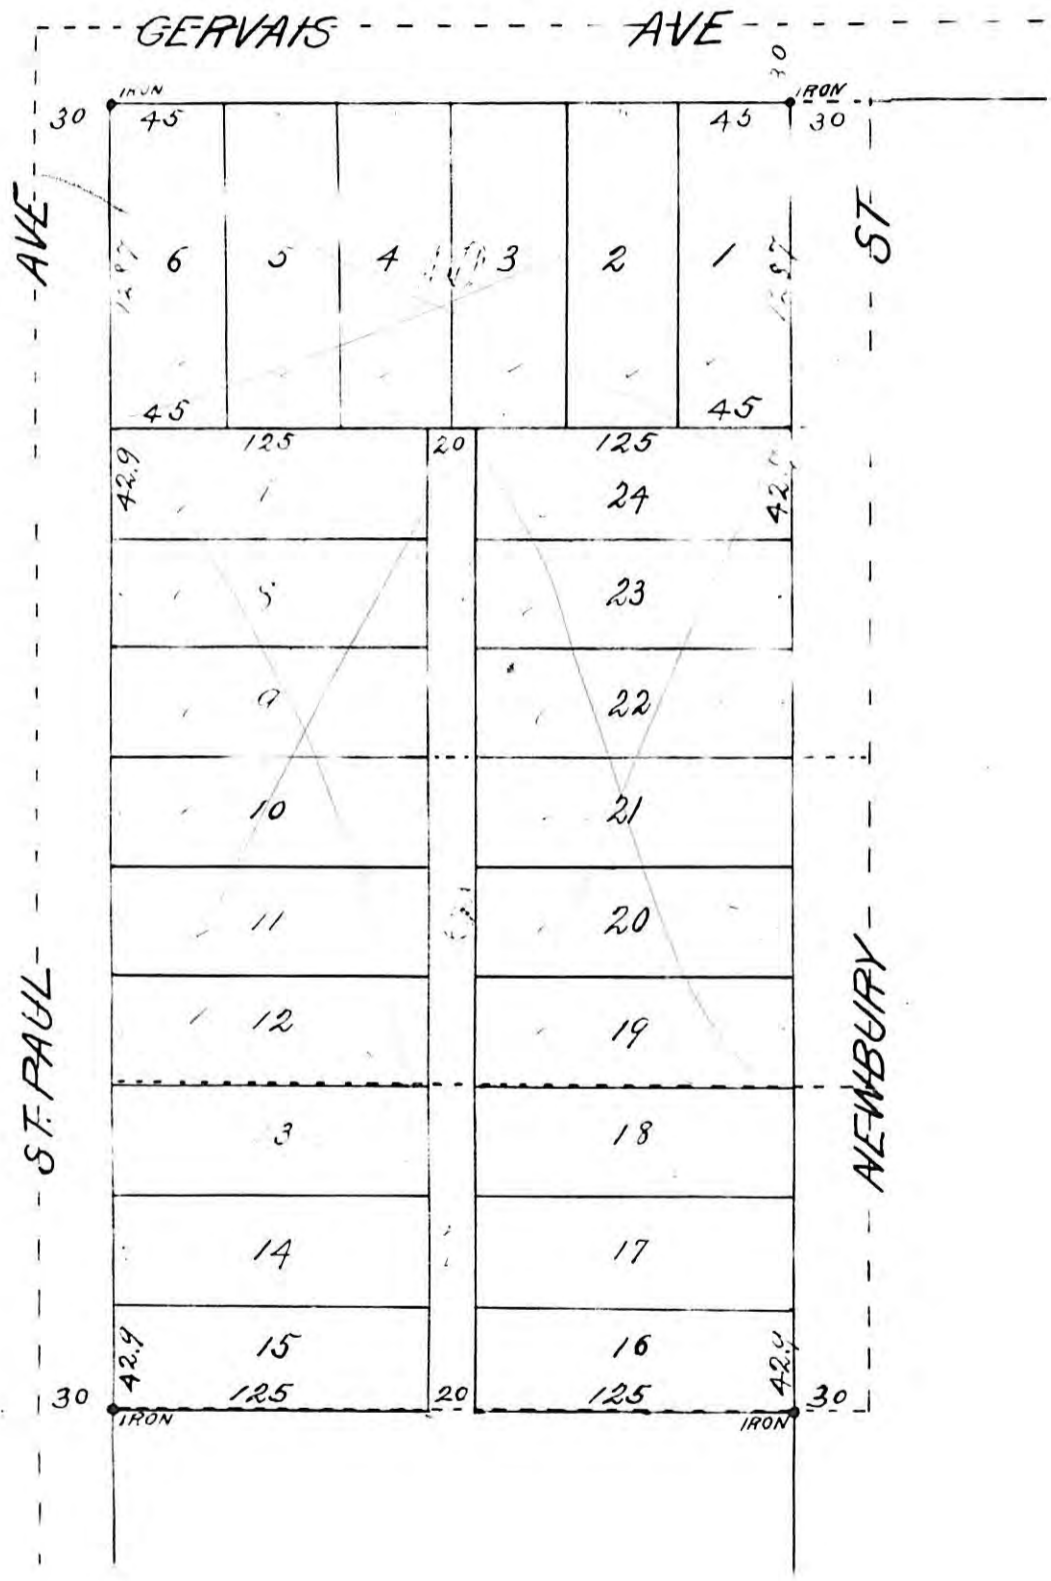 GERVAIS AVE
30
IRON IRON
30 45 45 30
AVE
ST
6 5 4 3 2 1
45 45
125 20 125
42.9
24
23
9 22
10 21
11 20
12 19
ST. PAUL
NEWBURY
3 18
14 17
15 16
42.9 42.9
30 125 20 125 30
IRON IRON